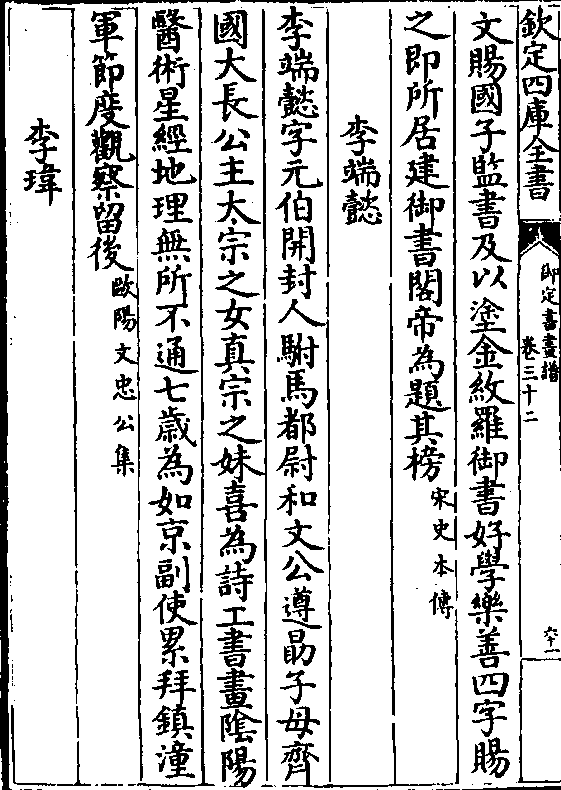 欽定四庫全書
御定書畫譜
卷三十二
六十一
文賜國子監書及以塗金紋羅御書好學樂善四字賜
之即所居建御書閣帝為題其榜宋史本傳
李端懿
李端懿字元伯開封人駙馬都尉和文公遵勗子母齊
國大長公主太宗之女真宗之妹喜為詩工書畫陰陽
醫術星經地理無所不通七歲為如京副使累拜鎮潼
軍節度觀察留後歐陽文忠公集
李瑋